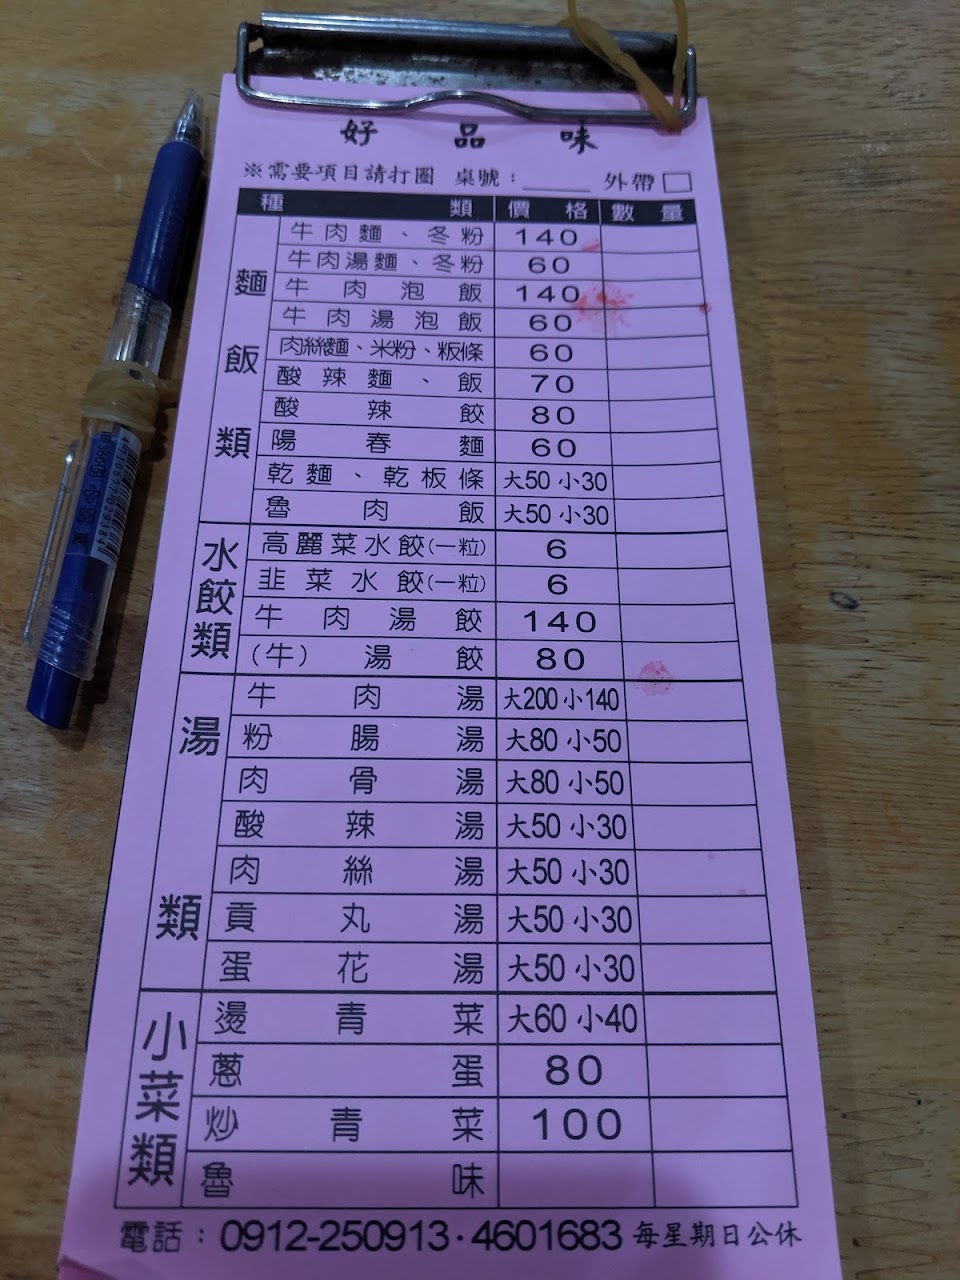 好品味
※需要項目請打圈 桌號：______ 外帶□
種類 價格 數量
麵飯類
牛肉麵、冬粉 140
牛肉湯麵、冬粉 60
牛肉泡飯 140
牛肉湯泡飯 60
肉絲麵、米粉、粄條 60
酸辣麵、飯 70
酸辣餃 80
陽春麵 60
乾麵、乾板條 大50 小30
魯肉飯 大50 小30
水餃類
高麗菜水餃(一粒) 6
韭菜水餃(一粒) 6
牛肉湯餃 140
(牛)湯餃 80
湯類
牛肉湯 大200 小140
粉腸湯 大80 小50
肉骨湯 大80 小50
酸辣湯 大50 小30
肉絲湯 大50 小30
貢丸湯 大50 小30
蛋花湯 大50 小30
小菜類
燙青菜 大60 小40
蔥蛋 80
炒青菜 100
魯味
電話：0912-250913·4601683 每星期日公休